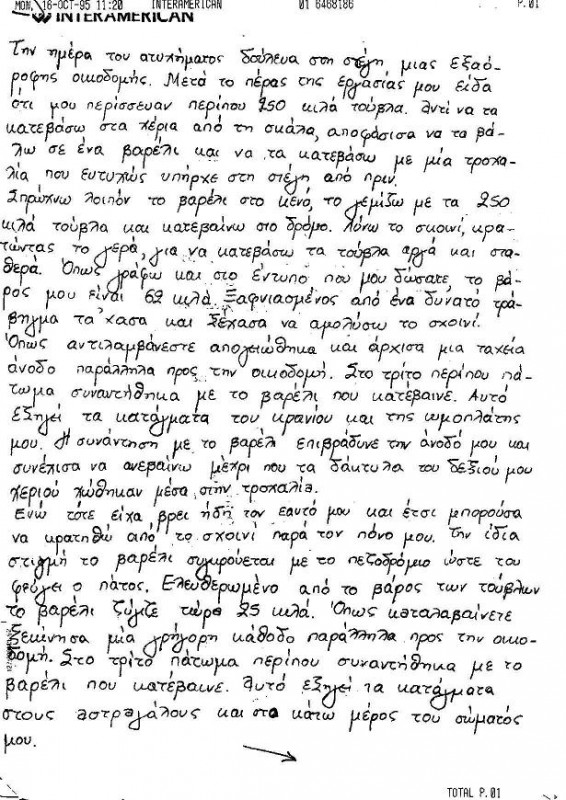 MON, 16-OCT-95 11:20 INTERAMERICAN 01 6468186 P.01
INTERAMERICAN
Την ημέρα του ατυχήματος δούλευα στη στέγη μιας εξαό-
ροφης οικοδομής. Μετά το πέρας της εργασίας μου είδα
ότι μου περίσσευαν περίπου 250 κιλά τούβλα. Αντί να τα
κατεβάσω στα χέρια από τη σκάλα, αποφάσισα να τα βά-
λω σε ένα βαρέλι και να τα κατεβάσω με μία τροχα-
λία που ευτυχώς υπήρχε στη στέγη από πριν.
Σπρώχνω λοιπόν το βαρέλι στο κενό, το γεμίζω με τα 250
κιλά τούβλα και κατεβαίνω στο δρόμο. Λύνω το σκοινί, κρα-
τώντας το γερά, για να κατεβάσω τα τούβλα αργά και στα-
θερά. Όπως γράφω και στο έντυπο που μου δώσατε, το βά-
ρος μου είναι 62 κιλά. Ξαφνιασμένος από ένα δυνατό τρά-
βηγμα τα χασα και ξέχασα να αμολύσω το σχοινί.
Όπως αντιλαμβάνεστε απογειώθηκα και άρχισα μια ταχεία
άνοδο παράλληλα προς την οικοδομή. Στο τρίτο περίπου πά-
τωμα συναντήθηκα με το βαρέλι που κατέβαινε. Αυτό
εξηγεί τα κατάγματα του κρανίου και της ωμοπλάτης
μου. Η συνάντηση με το βαρέλι επιβράδυνε την άνοδό μου και
συνέχισα να ανεβαίνω μέχρι που τα δάκτυλα του δεξιού μου
χεριού χώθηκαν μέσα στην τροχαλία.
Ενώ τότε είχα βρει ήδη τον εαυτό μου και έτσι μπορούσα
να κρατηθώ από το σκοινί παρά τον πόνο μου. Την ίδια
στιγμή το βαρέλι συγκρούεται με το πεζοδρόμιο ώστε του
φεύγει ο πάτος. Ελευθερωμένο από το βάρος των τούβλων
το βαρέλι ζύγιζε τώρα 25 κιλά. Όπως καταλαβαίνετε
ξεκίνησα μία γρήγορη κάθοδο παράλληλα προς την οικο-
δομή. Στο τρίτο πάτωμα περίπου συναντήθηκα με το
βαρέλι που κατέβαινε. Αυτό εξηγεί τα κατάγματα
στους αστραγάλους και στο κάτω μέρος του σώματός
μου.
TOTAL P.01